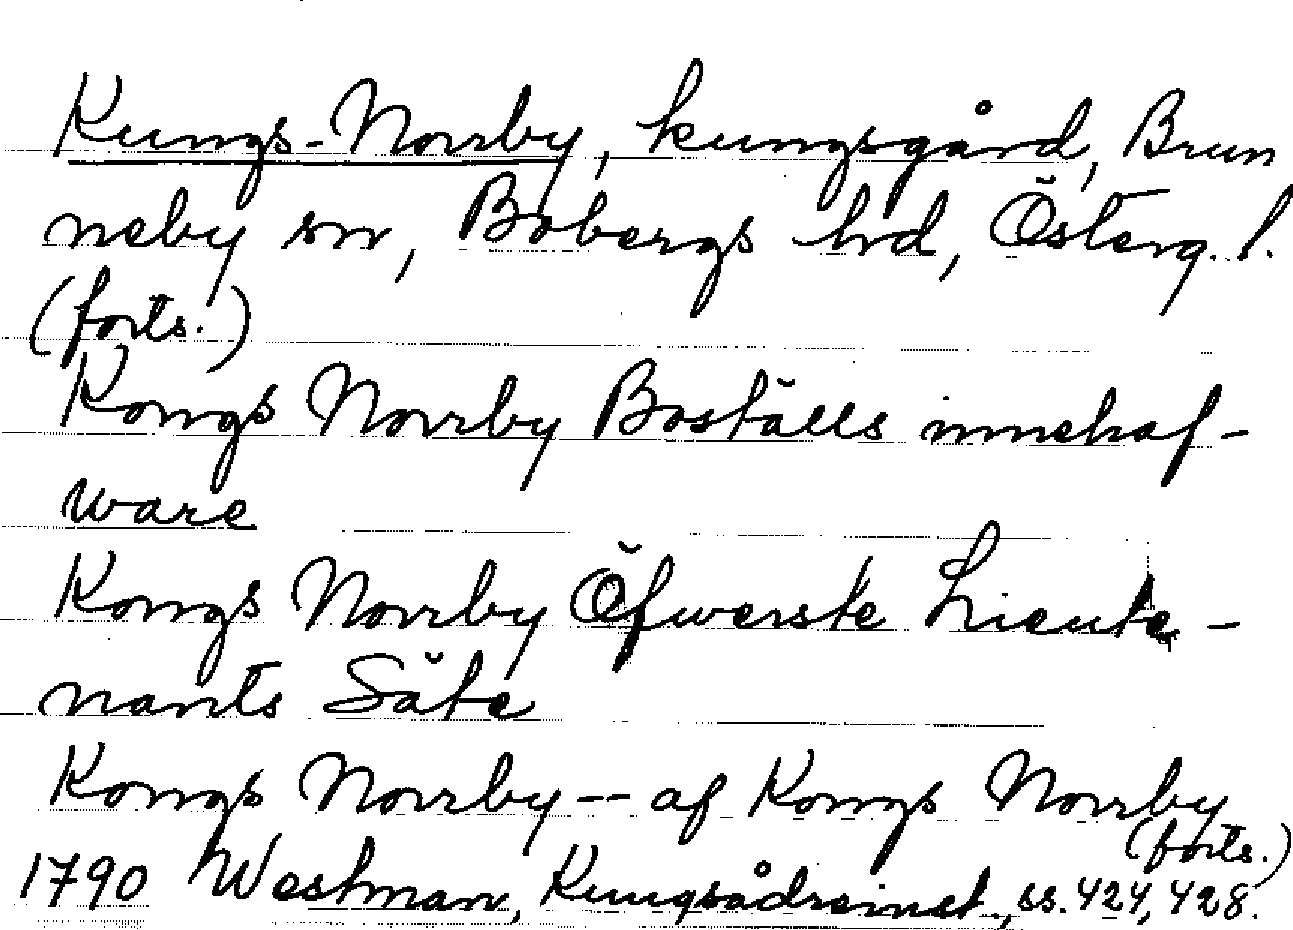 Kungs-Norrby, kungsgård, Brun
neby sn, Bobergs hd, Österg. l.
(forts.)
Kongs Norrby Boställs innehaf-
ware
Kongs Norrby Öfwerste Lieute-
nants Säte
Kongs Norrby -- af Kongs Norrby
(forts.)
1790 Westman, Kungsådreinst., ss. 424, 428.